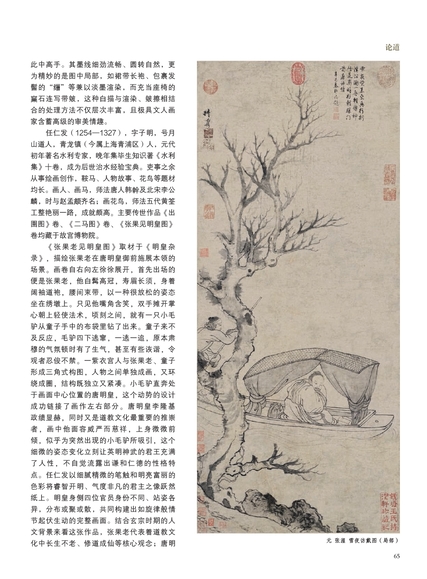 论道
此中高手。其墨线细劲流畅、圆转自然，更
为精妙的是图中局部，如裙带长袍、包裹发
髻的“纚”等兼以淡墨渲染，而充当座椅的
巖石连写带皴，这种白描与渲染、皴擦相结
合的处理方法不仅层次丰富，且极具文人画
家含蓄高级的审美情趣。
任仁发（1254—1327），字子明，号月
山道人，青龙镇（今属上海青浦区）人，元代
初年著名水利专家，晚年集毕生知识著《水利
集》十卷，成为后世治水经验宝典。吏事之余
从事绘画创作，鞍马、人物故事、花鸟等题材
均长。画人、画马，师法唐人韩幹及北宋李公
麟，时与赵孟頫齐名；画花鸟，师法五代黄筌
工整艳丽一路，成就颇高，主要传世作品《出
圉图》卷、《二马图》卷、《张果见明皇图》
卷均藏于故宫博物院。
《张果老见明皇图》取材于《明皇杂
录》，描绘张果老在唐明皇御前施展本领的
场景。画卷自右向左徐徐展开，首先出场的
便是张果老，他白鬓高冠，寿眉长须，身着
阔袖道袍，腰间束带，以一种很放松的姿态
坐在绣墩上。只见他嘴角含笑，双手摊开掌
心朝上轻使法术，顷刻之间，就有一只小毛
驴从童子手中的布袋里钻了出来。童子来不
及反应，毛驴四下逃窜，一逃一追，原本肃
穆的气氛顿时有了生气，甚至有些诙谐，令
观者忍俊不禁。一紫衣宫人与张果老、童子
形成三角式构图，人物之间单独成画，又环
绕成圈，结构既独立又紧凑。小毛驴直奔处
于画面中心位置的唐明皇，这个动势的设计
成功链接了画作左右部分。唐明皇李隆基
政绩显赫，同时又是道教文化最重要的推崇
者，画中他面容威严而慈祥，上身微微前
倾，似乎为突然出现的小毛驴所吸引，这个
细微的姿态变化立刻让英明神武的君王充满
了人性，不自觉流露出谦和仁德的性格特
点。任仁发以细腻精微的笔触和明亮富丽的
色彩将睿智开明、气度非凡的君主之像跃然
纸上。明皇身侧四位官员身份不同、站姿各
异，分布或聚或散，共同构建出如旋律般情
节起伏生动的完整画面。结合玄宗时期的人
文背景来看这张作品，张果老代表着道教文
化中长生不老、修道成仙等核心观念；唐明
元 张渥 雪夜访戴图（局部）
65